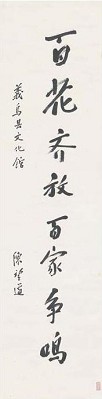 百花齐放百家争鸣
义乌县文化馆
陈望道